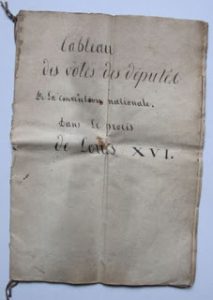 Tableau
des votes des députés
de la convention nationale.
Dans le procès
de Louis XVI.